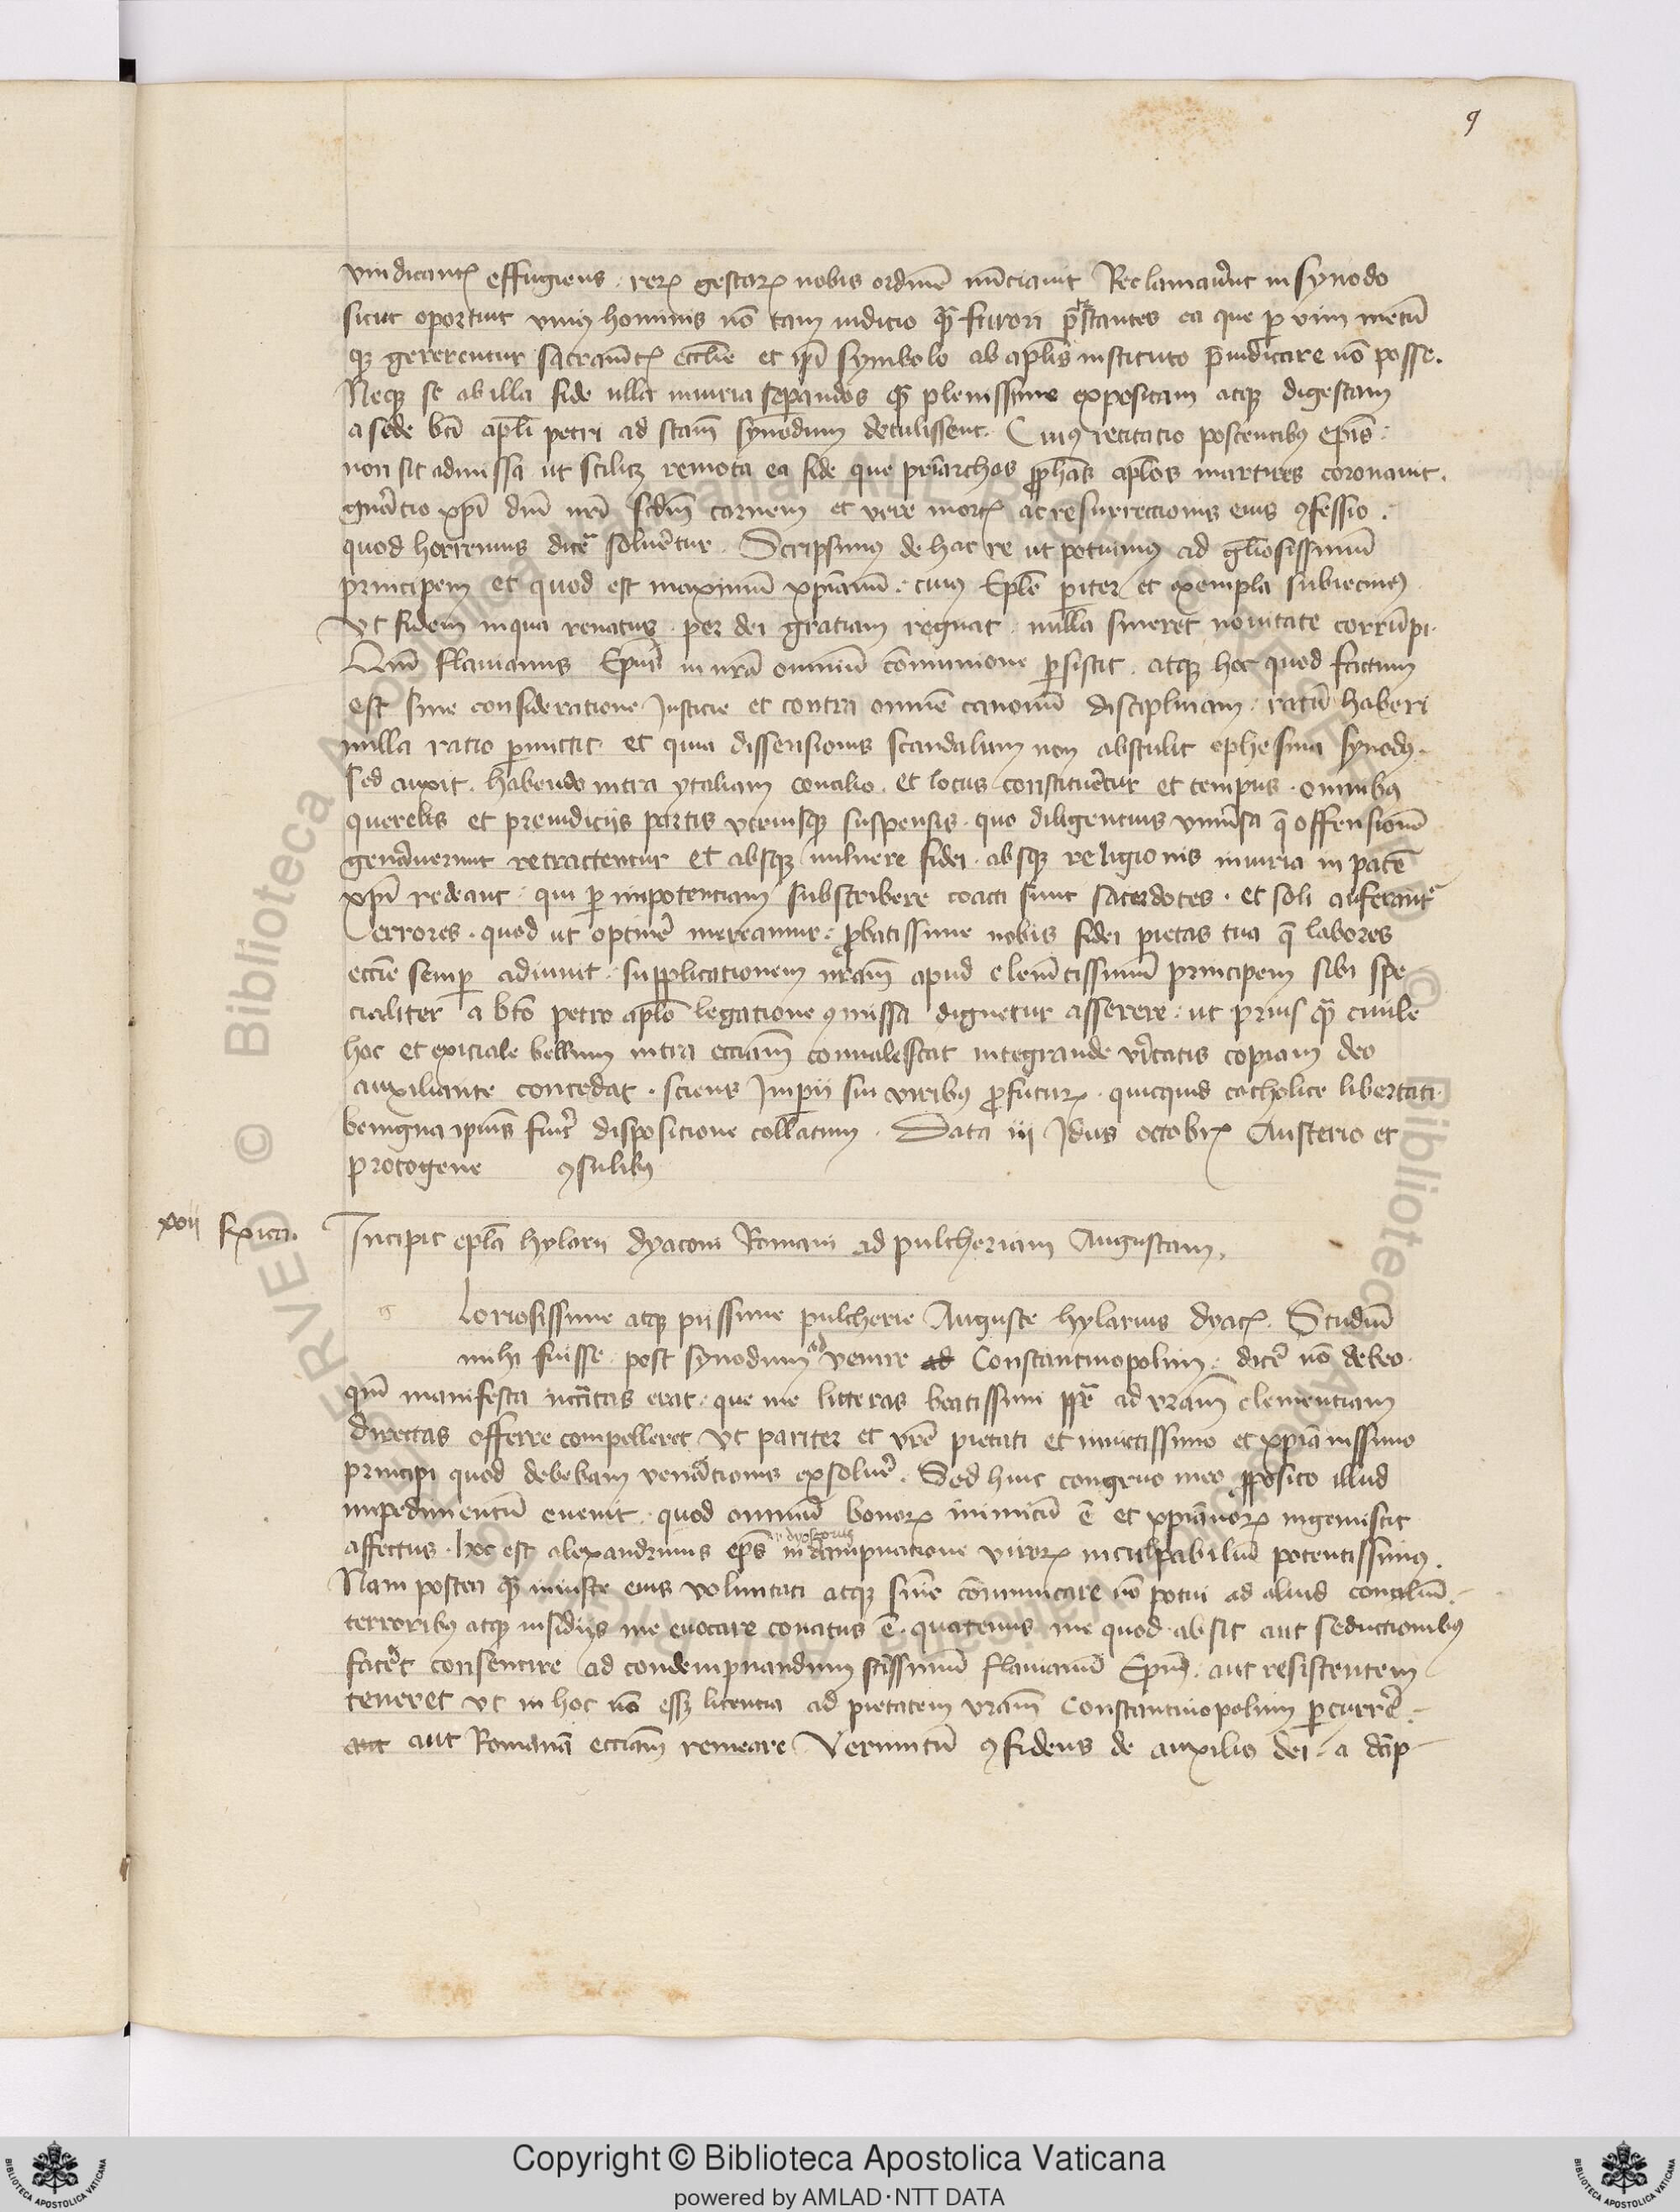 9
vindicantꝭ effugiens . rerꝝ gestarꝝ nobis ordinē nūciauit Reclamauer̄ūt in synodo
sicut oportuit vniꝰ hominis nō tam iudicio qᷓ furori p̄stantes ea que ꝑ vim metū
qꝫ gererentur sacramētꝭ eccl̄ie et ip̄i symbolo ab apl̄is instituto p̄iudicare nō posse .
Neqꝫ se ab illa fide ulla iniuria sep̄andos qᷓ plenissime expositam atqꝫ digestam
a sede bt̄i apl̄i petri ad sc̄am synodum detulissent . Cuiꝰ recitatio poscentibꝰ ep̄is :
non sit admissa ut scilicꝫ remota ea fide que pr̄iarchas ꝓph̄as apl̄os martires coronauit .
gn̄atio xp̄i dn̄i nr̄i scdm̄ carnem et vere mortꝭ ac resurrectionis eius ꝯfessio .
quod horremus dic̄e soluer̄etur . Scripsimꝰ de hac re ut potuimꝰ ad gl̄iosissimū
principem et quod est maximū xp̄ianū : cuiꝰ Ep̄le p̄iter et exempla subiecimꝰ
Vt fidem in qua renatus . per dei gratiam regnat . nulla sineret nouitate corrūpi .
Qm̄ flauianus Ep̄us in nr̄a omniū cōmunione ꝑsistit . atqꝫ hoc quod factum
est sine consideratione Justicie et contra omnē canonū disciplinam . ratū haberi
nulla ratio ꝑmittit et quia dissensionis scandalum non abstulit ephesina synodꝰ .
sed auxit . habendo intra ytaliam concilio . et locus constituer̄etur et tempus . omnibꝰ
querelis et preiudicijs partis vtriusqꝫ suspensis . quo diligentius vniuer̄sa q̄ offensionē
gen̄auerunt retractentur et absqꝫ uulnere fidei . absqꝫ religionis iniuria in pacē
xp̄i redeant : qui ꝑ impotentiam subscribere coacti sunt sacerdotes . et soli auferant᷑
errores . quod ut optiner̄e mereamur : ꝓbatissime nobis fidei pietas tua q̄ labores
eccl̄ie semꝑ adiuuit . supplicationem nr̄am apud clemētissimū principem sibi spe
cialiter a bt̄o petro apl̄o legatione ꝯmissa dignetur asserere : ut prius qᷓ ciuile
hoc et exiciale bellum intra eccl̄iam conualescat integrande vnitatis copiam deo
auxiliante concedat . sciens Imꝑii sui viribꝰ ꝓfuturꝝ . quicquid catholice libertati .
benigna ip̄ius fuer̄it dispositione collatum . Data iij Jdus octobrꝭ Austerio et
protogene ꝯsulibꝰ
xvij
Incipit epl̄a hylarii dyaconi Romani ad pulcheriam Augustam .
g
Loriosissime atqꝫ piissime pulcherie Auguste hylarius dyacꝭ . Studiū
mihi fuisse . post synodum ad venire ad Constantinopolim . dicer̄e nō debeo .
qm̄ manifesta nec̄itas erat . que me litteras beatissimi pp̄e ad vr̄am clementiam
directas offerre compelleret Vt pariter et vr̄e pietati et inuictissimo et xp̄ianissimo
principi quod debebam ven̄ationis exsoluer̄e . Sed huic congruo meo ꝓposito illud
impedimentū euenit . quod omniū bonorꝝ inimicū ē et xp̄ianorꝝ ingemiscit
affectus . hoc est alexandrinus ep̄s dyoscorus in dampnatione virorꝝ inculpabiliū potentissimꝰ .
Nam postea qᷓ iniuste eius voluntati atqꝫ sn̄ie cōmunicare nō potui ad aliud conciliū .
terroribꝰ atqꝫ insidijs me euocare conatus ē . quatenus me quod absit aut seductionibꝰ
facer̄et consentire ad condempnandum sc̄issimū flauianū Ep̄m . aut resistentem
teneret vt in hoc nō essꝫ licentia ad pietatem vr̄am Constantinopolim ꝑcurrer̄e .
aut aut Romanā eccl̄iam remeare Verūtm̄ ꝯfidens de auxilio dei . a dāp
Copyright © Biblioteca Apostolica Vaticana
powered by AMLAD·NTT DATA